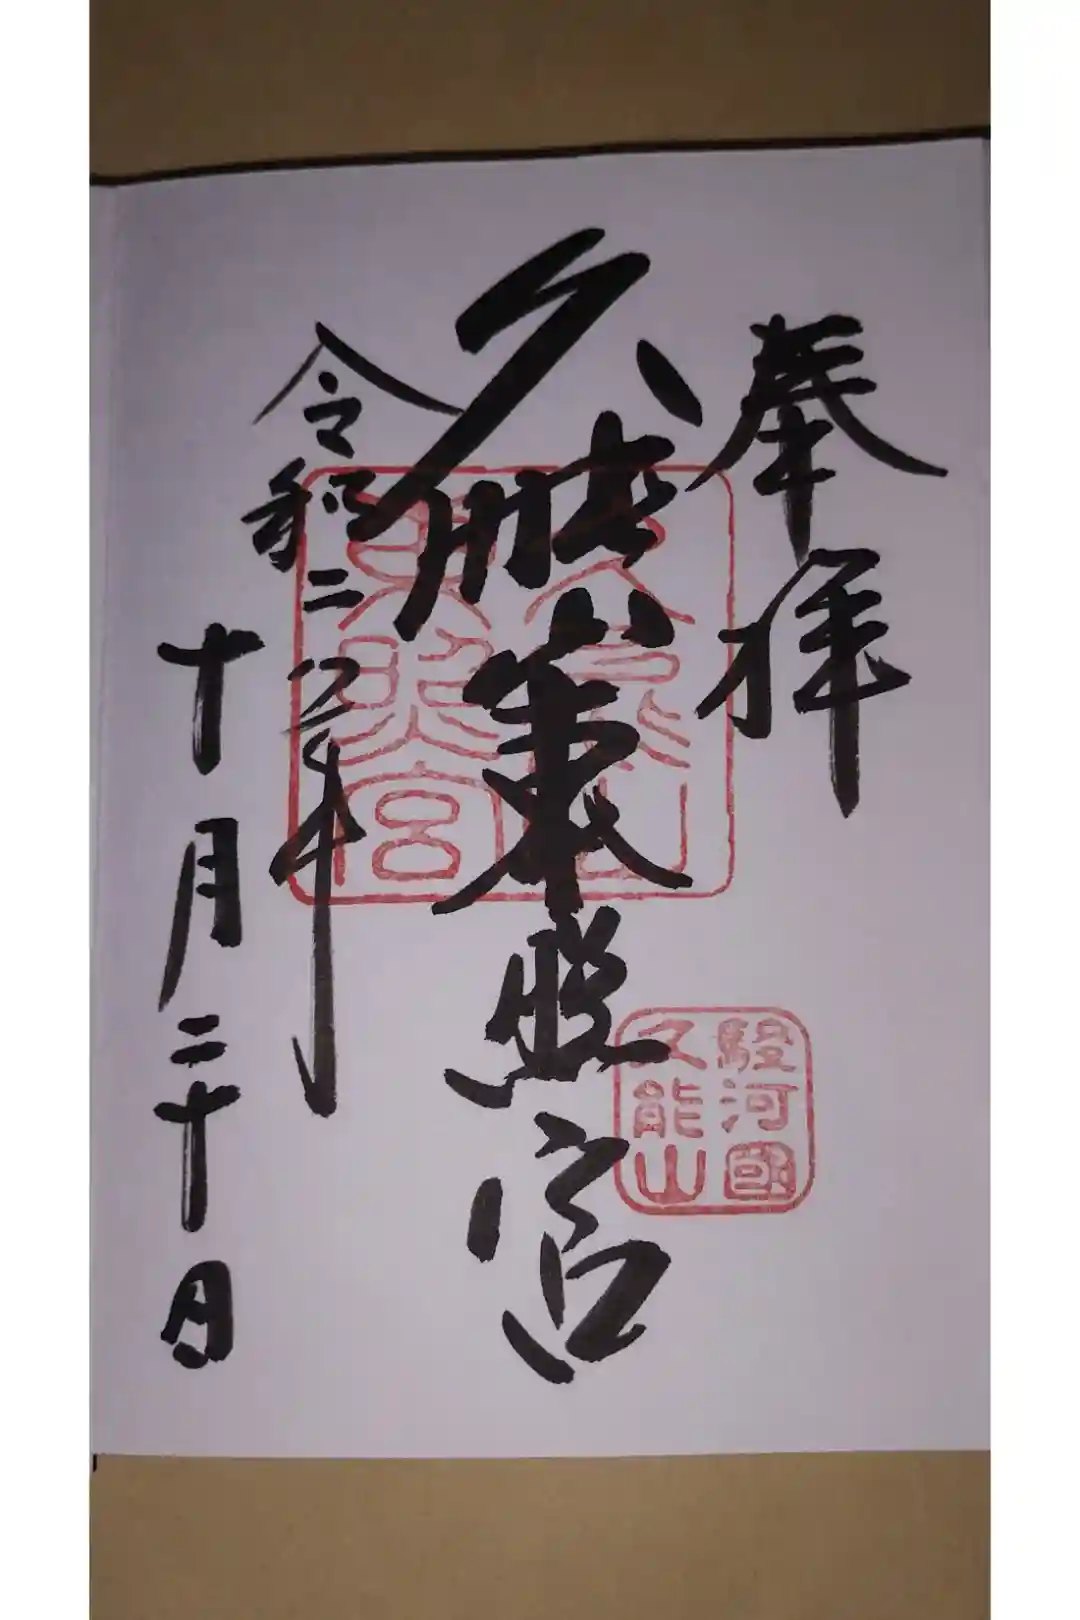 奉拝
久能山東照宮
令和二年
十月二十日
久能山
東照宮
駿河國
久能山